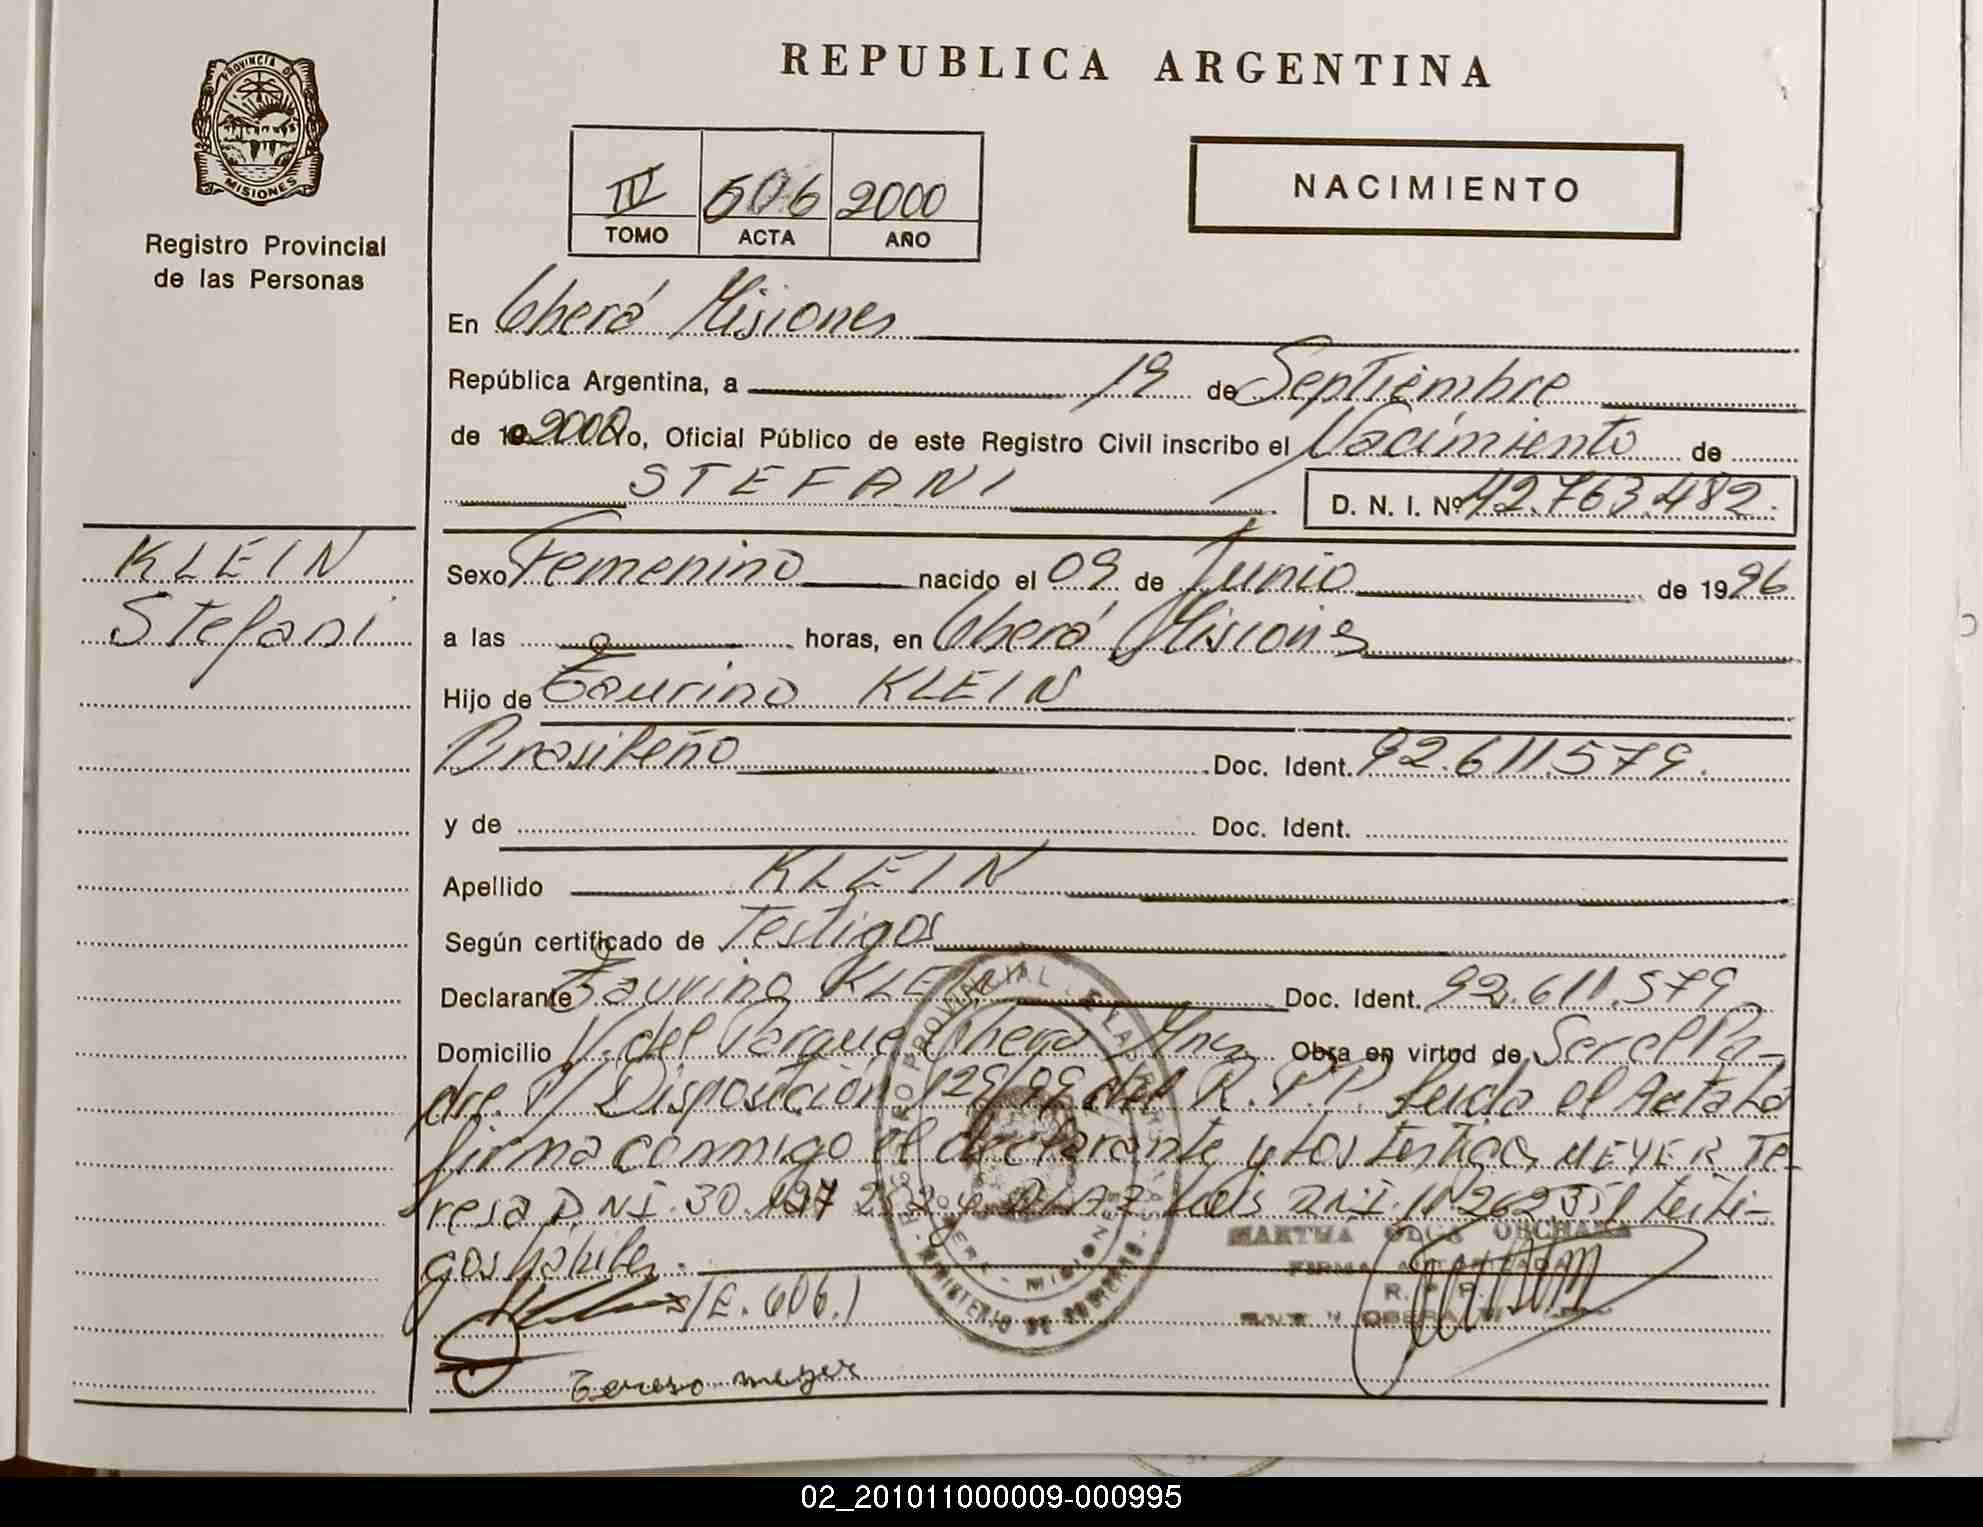 PROVINCIA DE
MISIONES
Registro Provincial
de las Personas
REPUBLICA ARGENTINA
IV 606 2000
TOMO ACTA AÑO
NACIMIENTO
En Oberá Misiones
República Argentina, a 19 de Septiembre
de 19 2000 Yo, Oficial Público de este Registro Civil inscribo el Nacimiento de
STEFANI D. N. I. Nº 42.763.482.
KLEIN
Stefani
Sexo Femenino nacido el 09 de Junio de 1996
a las horas, en Oberá Misiones
Hijo de Taurino KLEIN
Brasileño Doc. Ident. 92.611.579.
y de Doc. Ident.
Apellido KLEIN
Según certificado de Testigos
Declarante Taurino KLEIN Doc. Ident. 92.611.579
Domicilio V. del Parque Oberá Mnes Obra en virtud de Ser el Pa-
dre. P/ Disposición 129/99 del R.P.P. Leida el Acta La
firma conmigo el declarante y los testigos MEYER Te-
resa DNI. 30. y Luis DNI. 11.262351 testi-
gos hábiles.
(E. 606.)
MARTHA OLGA
FIRMA AUTORIZADA
R. P. P.
OBERA
Tereso meyer
MINISTERIO DE GOBIERNO
OBERA - MISIONES
02_201011000009-000995